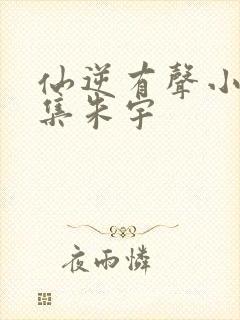 仙逆有聲小
集朱宇
夜雨憐